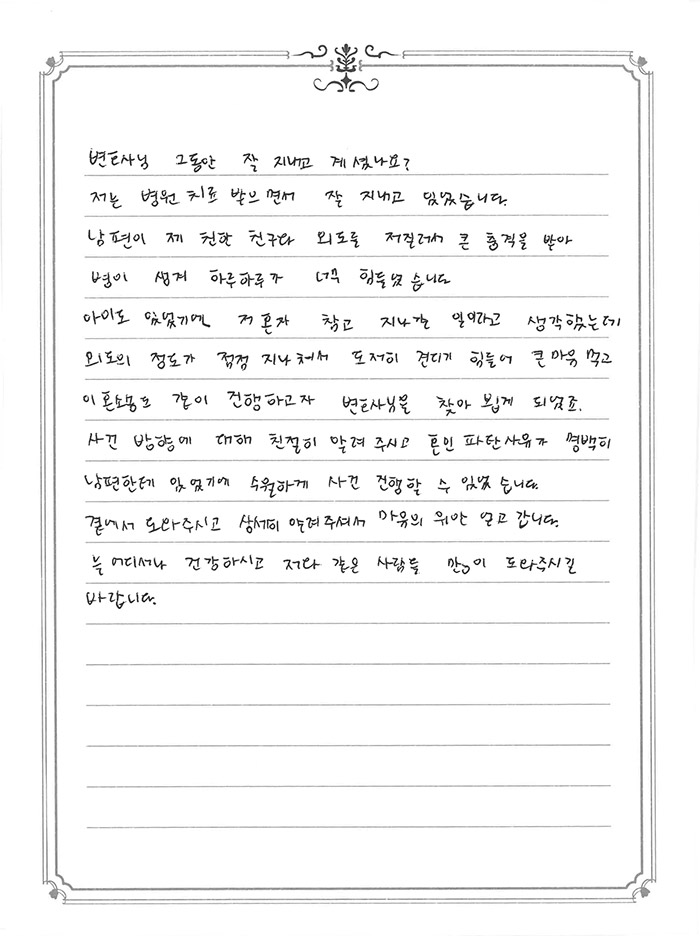 변호사님 그동안 잘 지내고 계셨나요?
저는 병원 치료 받으면서 잘 지내고 있었습니다.
남편이 제 친한 친구와 외도를 저질러서 큰 충격을 받아
병이 생겨 하루하루가 너무 힘들었습니다
아이도 있었기에 저 혼자 참고 지나갈 일이라고 생각했는데
외도의 정도가 점점 지나쳐서 도저히 견디기 힘들어 큰마음 먹고
이혼소송도 같이 진행하고자 변호사님을 찾아 뵙게 되었죠.
사건 방향에 대해 친절히 알려 주시고 혼인 파탄사유가 명백히
남편한테 있었기에 수월하게 사건 진행할 수 있었습니다.
곁에서 도와주시고 상세히 알려주셔서 마음의 위안 얻고 갑니다.
늘 어디서나 건강하시고 저와 같은 사람들 많이 도와주시길
바랍니다.